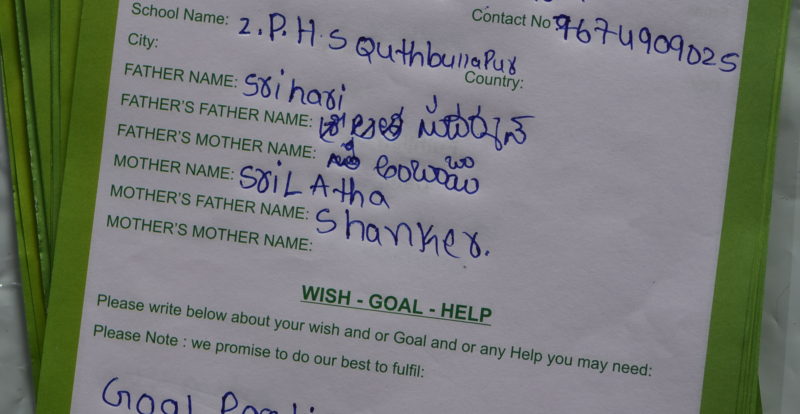 School Name: Z.P.H.S Quthbullapur
Contact No 9674909025
City:
Country:
FATHER NAME: Srihari
FATHER'S FATHER NAME:
FATHER'S MOTHER NAME:
MOTHER NAME: SriLAtha
MOTHER'S FATHER NAME: Shanker.
MOTHER'S MOTHER NAME:
WISH - GOAL - HELP
Please write below about your wish and or Goal and or any Help you may need:
Please Note : we promise to do our best to fulfil:
Goal